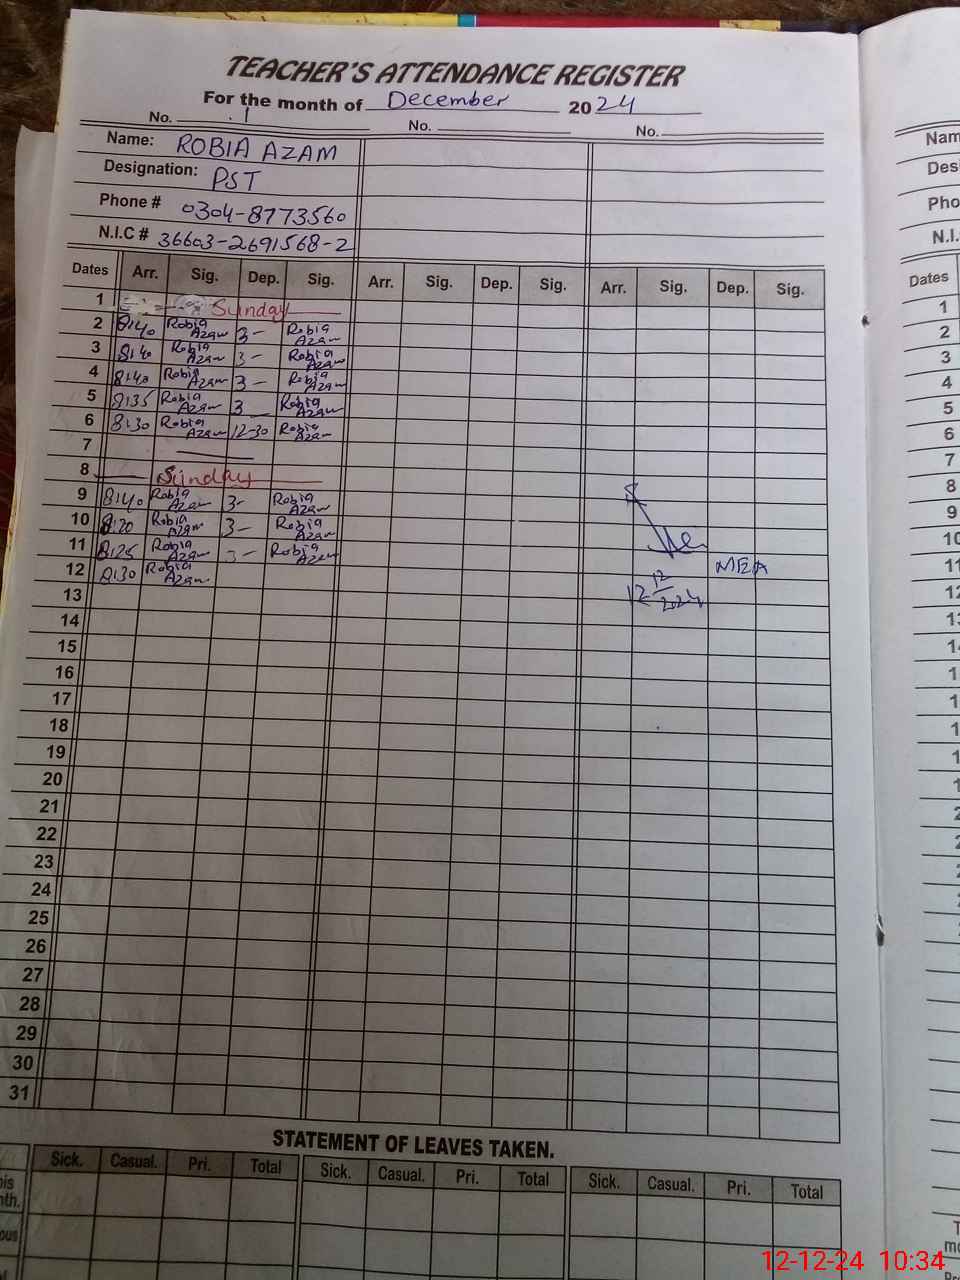 TEACHER'S ATTENDANCE REGISTER
For the month of December 2024
No. 1 No. No.
Name: ROBIA AZAM
Designation: PST
Phone # 0304-8773560
N.I.C # 36603-2691568-2
Dates Arr. Sig. Dep. Sig. Arr. Sig. Dep. Sig. Arr. Sig. Dep. Sig.
1 Sunday
2 8:40 Robia Azam 3- Robia Azam
3 8:40 Robia Azam 3- Robia Azam
4 8:40 Robia Azam 3- Robia Azam
5 8:35 Robia Azam 3- Robia Azam
6 8:30 Robia Azam 12-30 Robia Azam
7
8 Sunday
9 8:40 Robia Azam 3- Robia Azam
10 8:20 Robia Azam 3- Robia Azam
11 8:25 Robia Azam 3- Robia Azam
12 8:30 Robia Azam
MEA
12 12/2024
13
14
15
16
17
18
19
20
21
22
23
24
25
26
27
28
29
30
31
STATEMENT OF LEAVES TAKEN.
Sick. Casual. Pri. Total Sick. Casual. Pri. Total Sick. Casual. Pri. Total
Dates
1
2
3
4
5
6
7
8
9
10
11
12
13
12-12-24 10:34